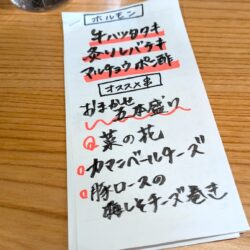 ホルモン
牛ハツタタキ
炙りレバテキ
マルチョウポン酢
オススメ串
おまかせ五本盛り
菜の花
カマンベールチーズ
豚ロースの
梅しそチーズ巻き